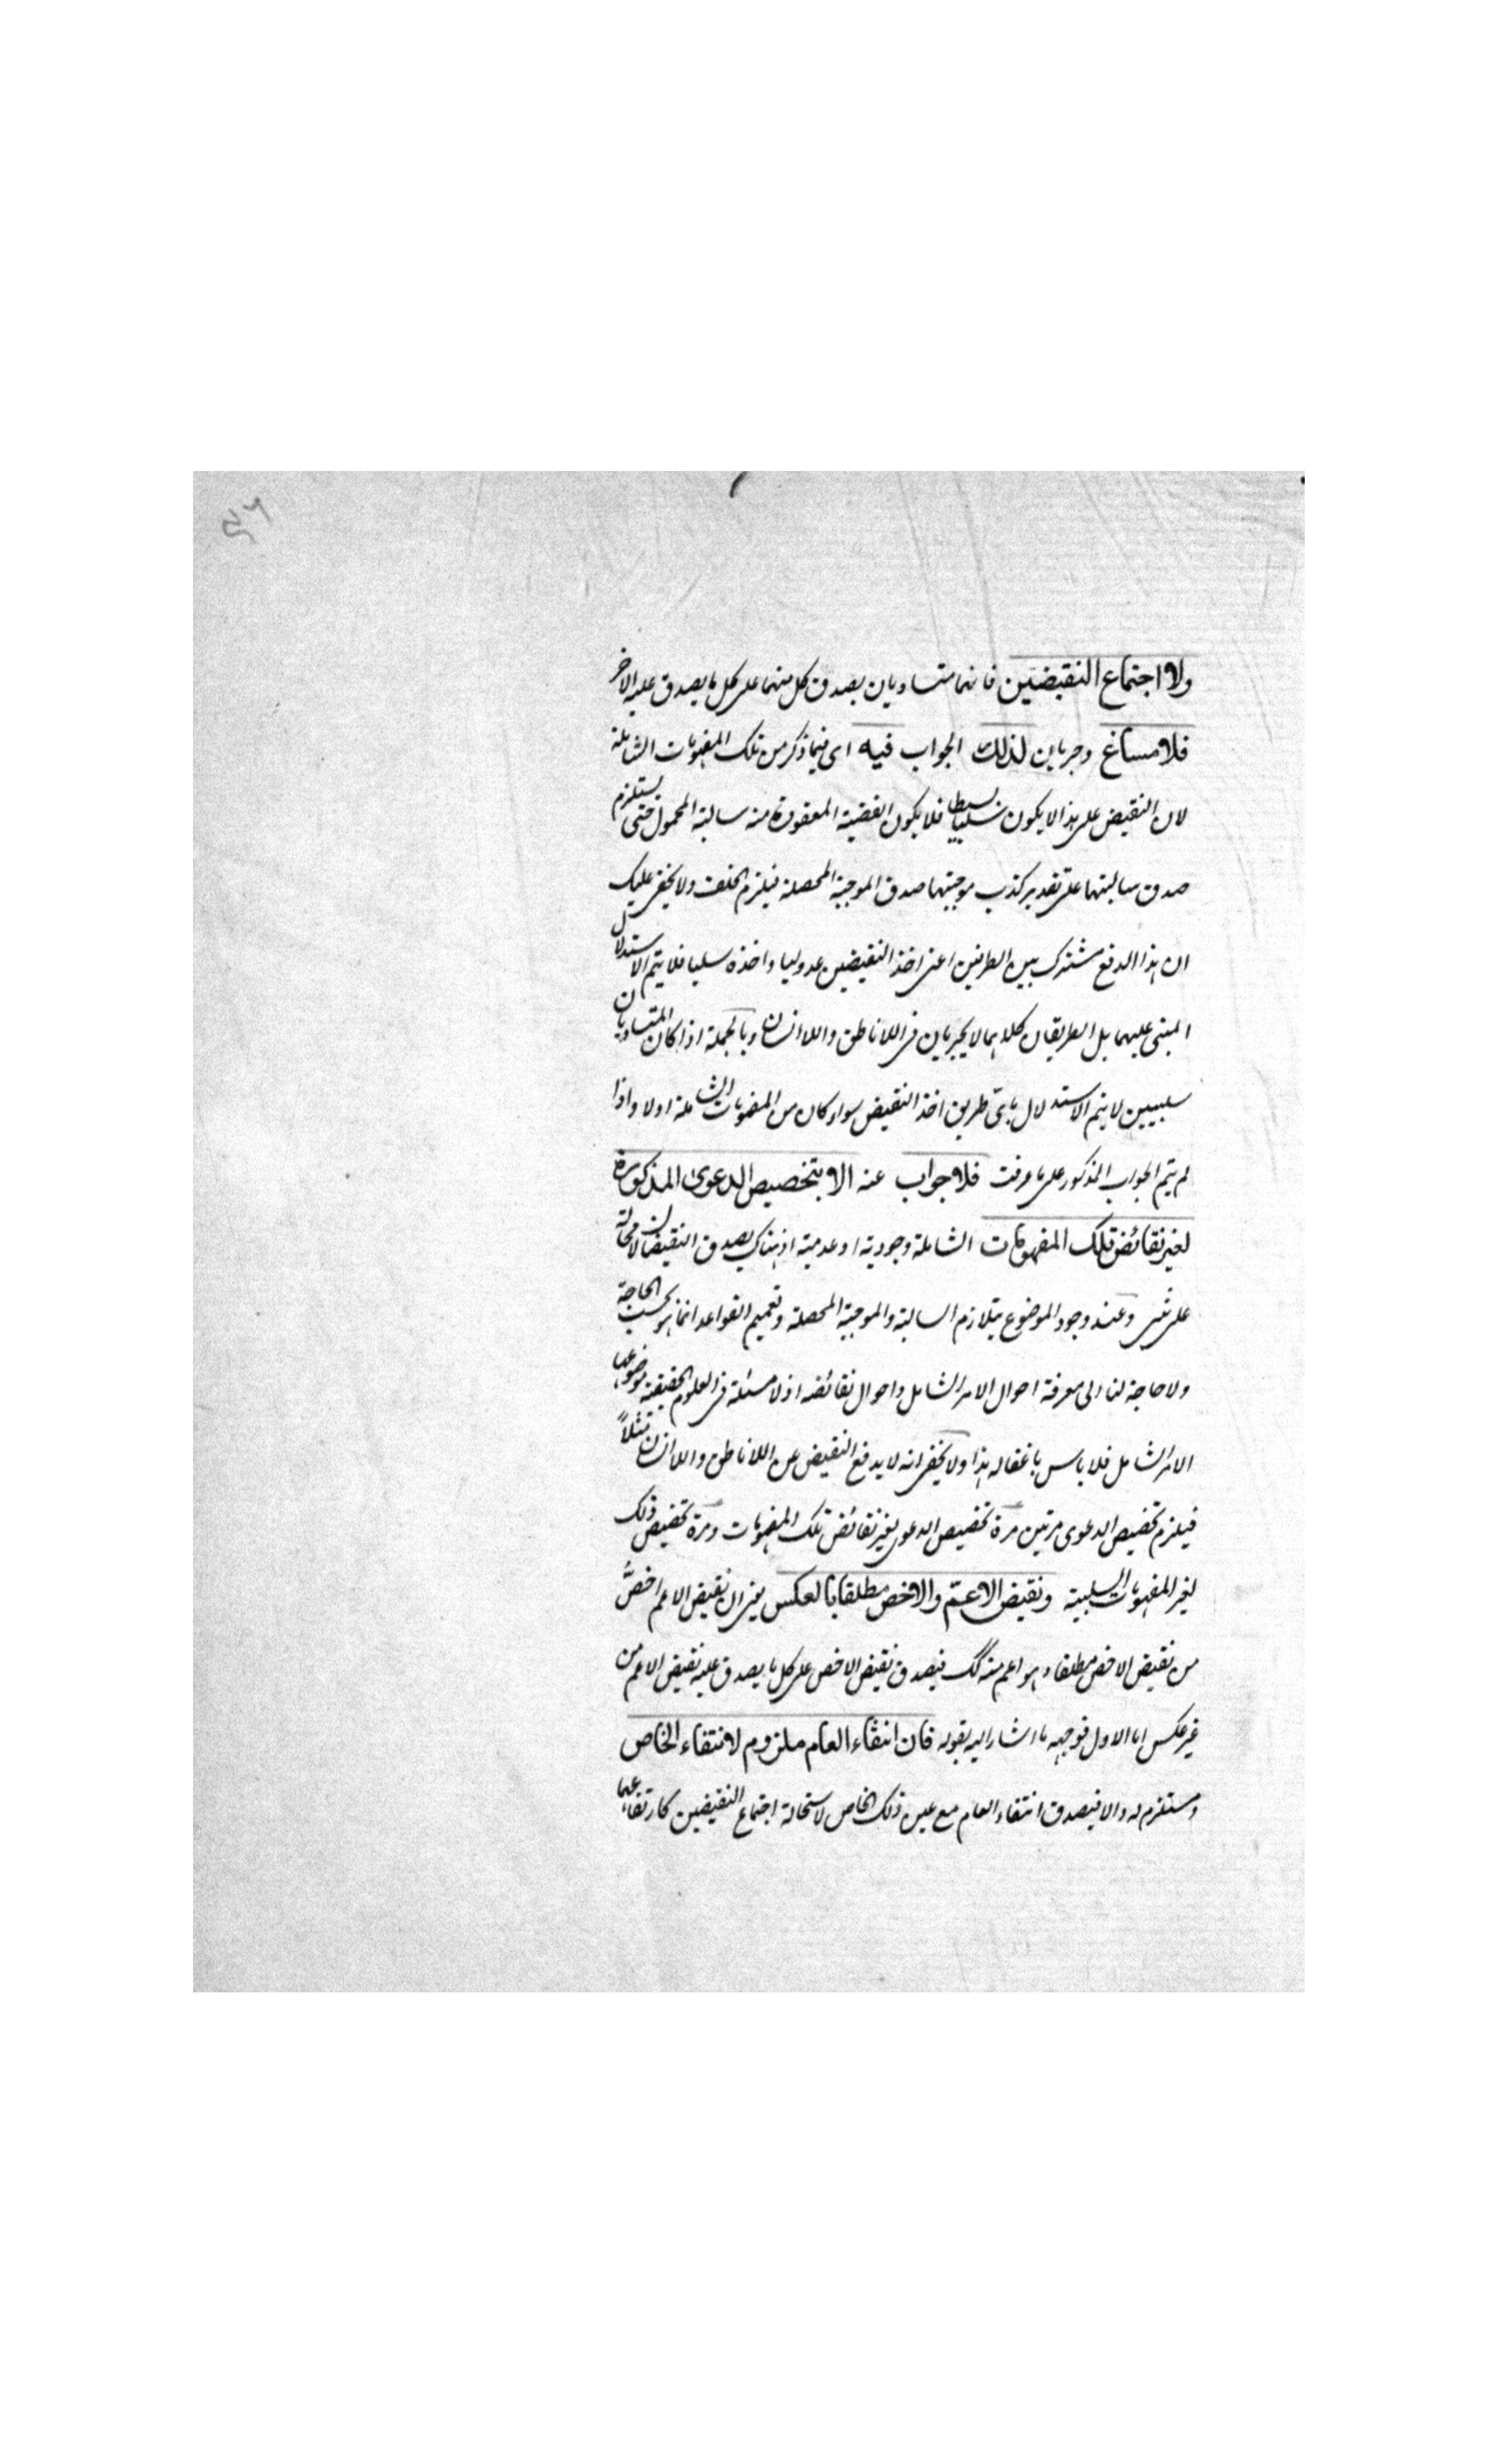 ٥٦
ولا اجتماع النقيضين فانهما متساويان يصدق كل منهما على كل ما يصدق عليه الاخر
فلا مساغ وجريان لذلك الجواب فيه اى فيما ذكر من تلك المفهومات الشاملة
لان النقيض على هذا لا يكون سلبا بسيطا فلا يكون القضية المعقودة منه سالبة المحمول حتى يستلزم
صدق سالبتهما على تقدير كذب موجبتهما صدق الموجبة المحصلة فيلزم الخلف ولا يخفى عليك
ان هذا الدفع مشترك بين الطرفين اعنى اخذ النقيضين عدوليا واخذه سلبيا فلا يتم الاستدلال
المبنى عليهما بل الطريقان كلاهما لا يجريان فى اللاناطق واللاانسان وبالجملة اذا كان المتساويان
سلبيين لا يتم الاستدلال باى طريق اخذ النقيض سواء كان من المفهومات الشاملة اولا واذا
لم يتم الجواب المذكور على ما عرفت فلا جواب عنه الا بتخصيص الدعوى المذكورة
لغير نقائض تلك المفهومات الشاملة وجودية او عدمية اذ هناك يصدق النقيضان لا محالة
على شى وعند وجود الموضوع يتلازم السالبة والموجبة المحصلة وتعميم القواعد انما هو بحسب الحاجة
ولا حاجة لنا الى معرفة احوال الامر الشامل واحوال نقائضه اذ لا مسئلة فى العلوم الحقيقية موضوعها
الامر الشامل فلا باس باغفاله هذا ولا يخفى انه لا يدفع النقيض عن اللاناطق واللاانسان مثلاً
فيلزم تخصيص الدعوى مرتين مرة تخصيص الدعوى بغير نقائض تلك المفهومات ومرة تخصيص ذلك
لغير المفهومات السلبية ونقيض الاعمّ والاخص مطلقا بالعكس يعنى ان نقيض الاعم اخصّ
من نقيض الاخص مطلقا وهو اعم منه كك فيصدق نقيض الاخص على كل ما يصدق عليه نقيض الاعم من
غير عكس اما الاول فوجهه ما اشار اليه بقوله فان انتفاء العام ملزوم لانتفاء الخاص
ومستلزم له والا فيصدق انتفاء العام مع عين ذلك الخاص لاستحالة اجتماع النقيضين كارتفاعهما